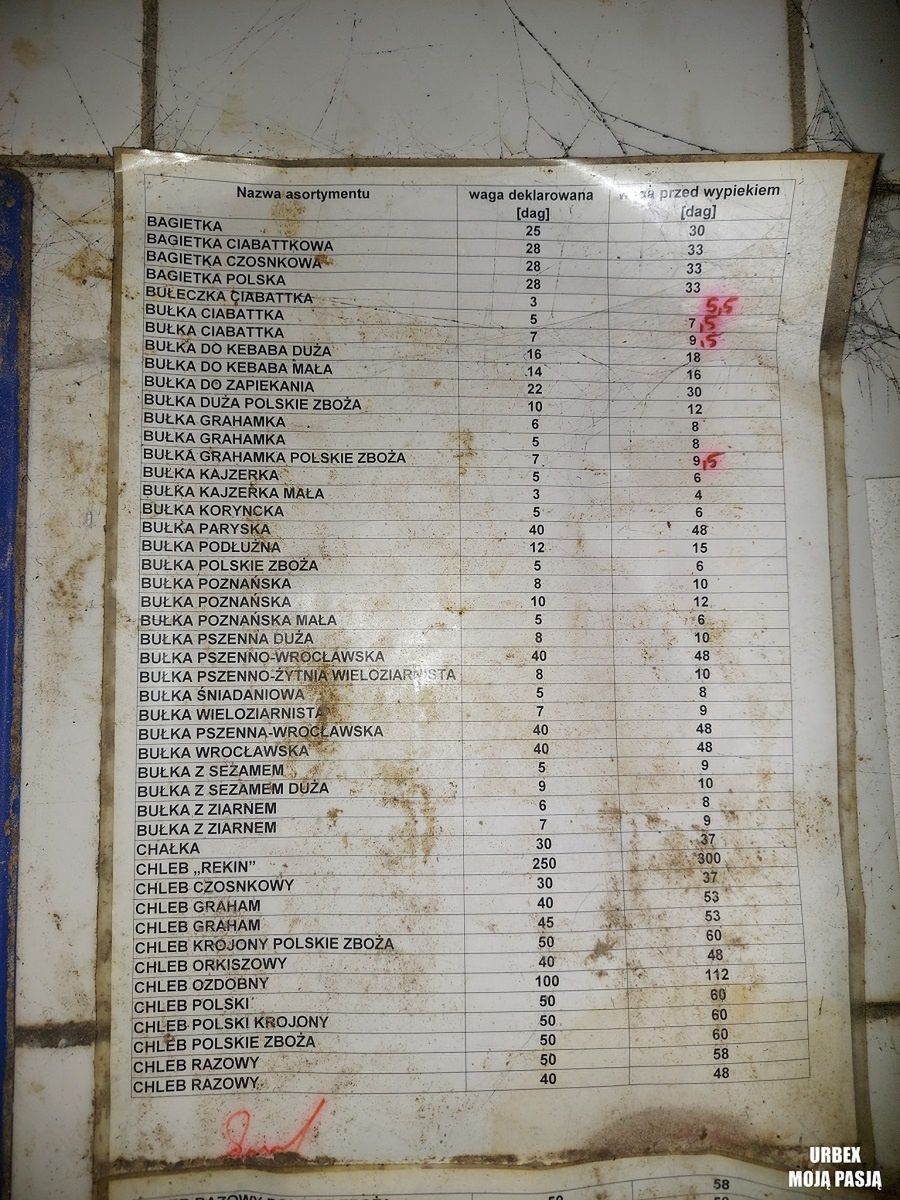 Nazwa asortymentu waga deklarowana [dag] waga przed wypiekiem [dag]
BAGIETKA 25 30
BAGIETKA CIABATTKOWA 28 33
BAGIETKA CZOSNKOWA 28 33
BAGIETKA POLSKA 28 33
BUŁECZKA CIABATTKA 3 5,5
BUŁKA CIABATTKA 5 7,5
BUŁKA CIABATTKA 7 9,5
BUŁKA DO KEBABA DUŻA 16 18
BUŁKA DO KEBABA MAŁA 14 16
BUŁKA DO ZAPIEKANIA 22 30
BUŁKA DUŻA POLSKIE ZBOŻA 10 12
BUŁKA GRAHAMKA 6 8
BUŁKA GRAHAMKA 5 8
BUŁKA GRAHAMKA POLSKIE ZBOŻA 7 9,5
BUŁKA KAJZERKA 5 6
BUŁKA KAJZERKA MAŁA 3 4
BUŁKA KORYNCKA 5 6
BUŁKA PARYSKA 40 48
BUŁKA PODŁUŻNA 12 15
BUŁKA POLSKIE ZBOŻA 5 6
BUŁKA POZNAŃSKA 8 10
BUŁKA POZNAŃSKA 10 12
BUŁKA POZNAŃSKA MAŁA 5 6
BUŁKA PSZENNA DUŻA 8 10
BUŁKA PSZENNO-WROCŁAWSKA 40 48
BUŁKA PSZENNO-ŻYTNIA WIELOZIARNISTA 8 10
BUŁKA ŚNIADANIOWA 5 8
BUŁKA WIELOZIARNISTA 7 9
BUŁKA PSZENNA-WROCŁAWSKA 40 48
BUŁKA WROCŁAWSKA 40 48
BUŁKA Z SEZAMEM 5 9
BUŁKA Z SEZAMEM DUŻA 9 10
BUŁKA Z ZIARNEM 6 8
BUŁKA Z ZIARNEM 7 9
CHAŁKA 30 37
CHLEB „REKIN” 250 300
CHLEB CZOSNKOWY 30 37
CHLEB GRAHAM 40 53
CHLEB GRAHAM 45 53
CHLEB KROJONY POLSKIE ZBOŻA 50 60
CHLEB ORKISZOWY 40 48
CHLEB OZDOBNY 100 112
CHLEB POLSKI 50 60
CHLEB POLSKI KROJONY 50 60
CHLEB POLSKIE ZBOŻA 50 60
CHLEB RAZOWY 50 58
CHLEB RAZOWY 40 48
58
URBEX
MOJĄ PASJĄ